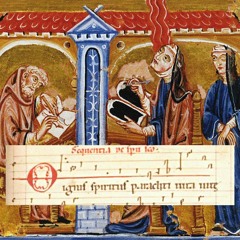 Sequentia de
O ignis spiritus paracliti uita uite